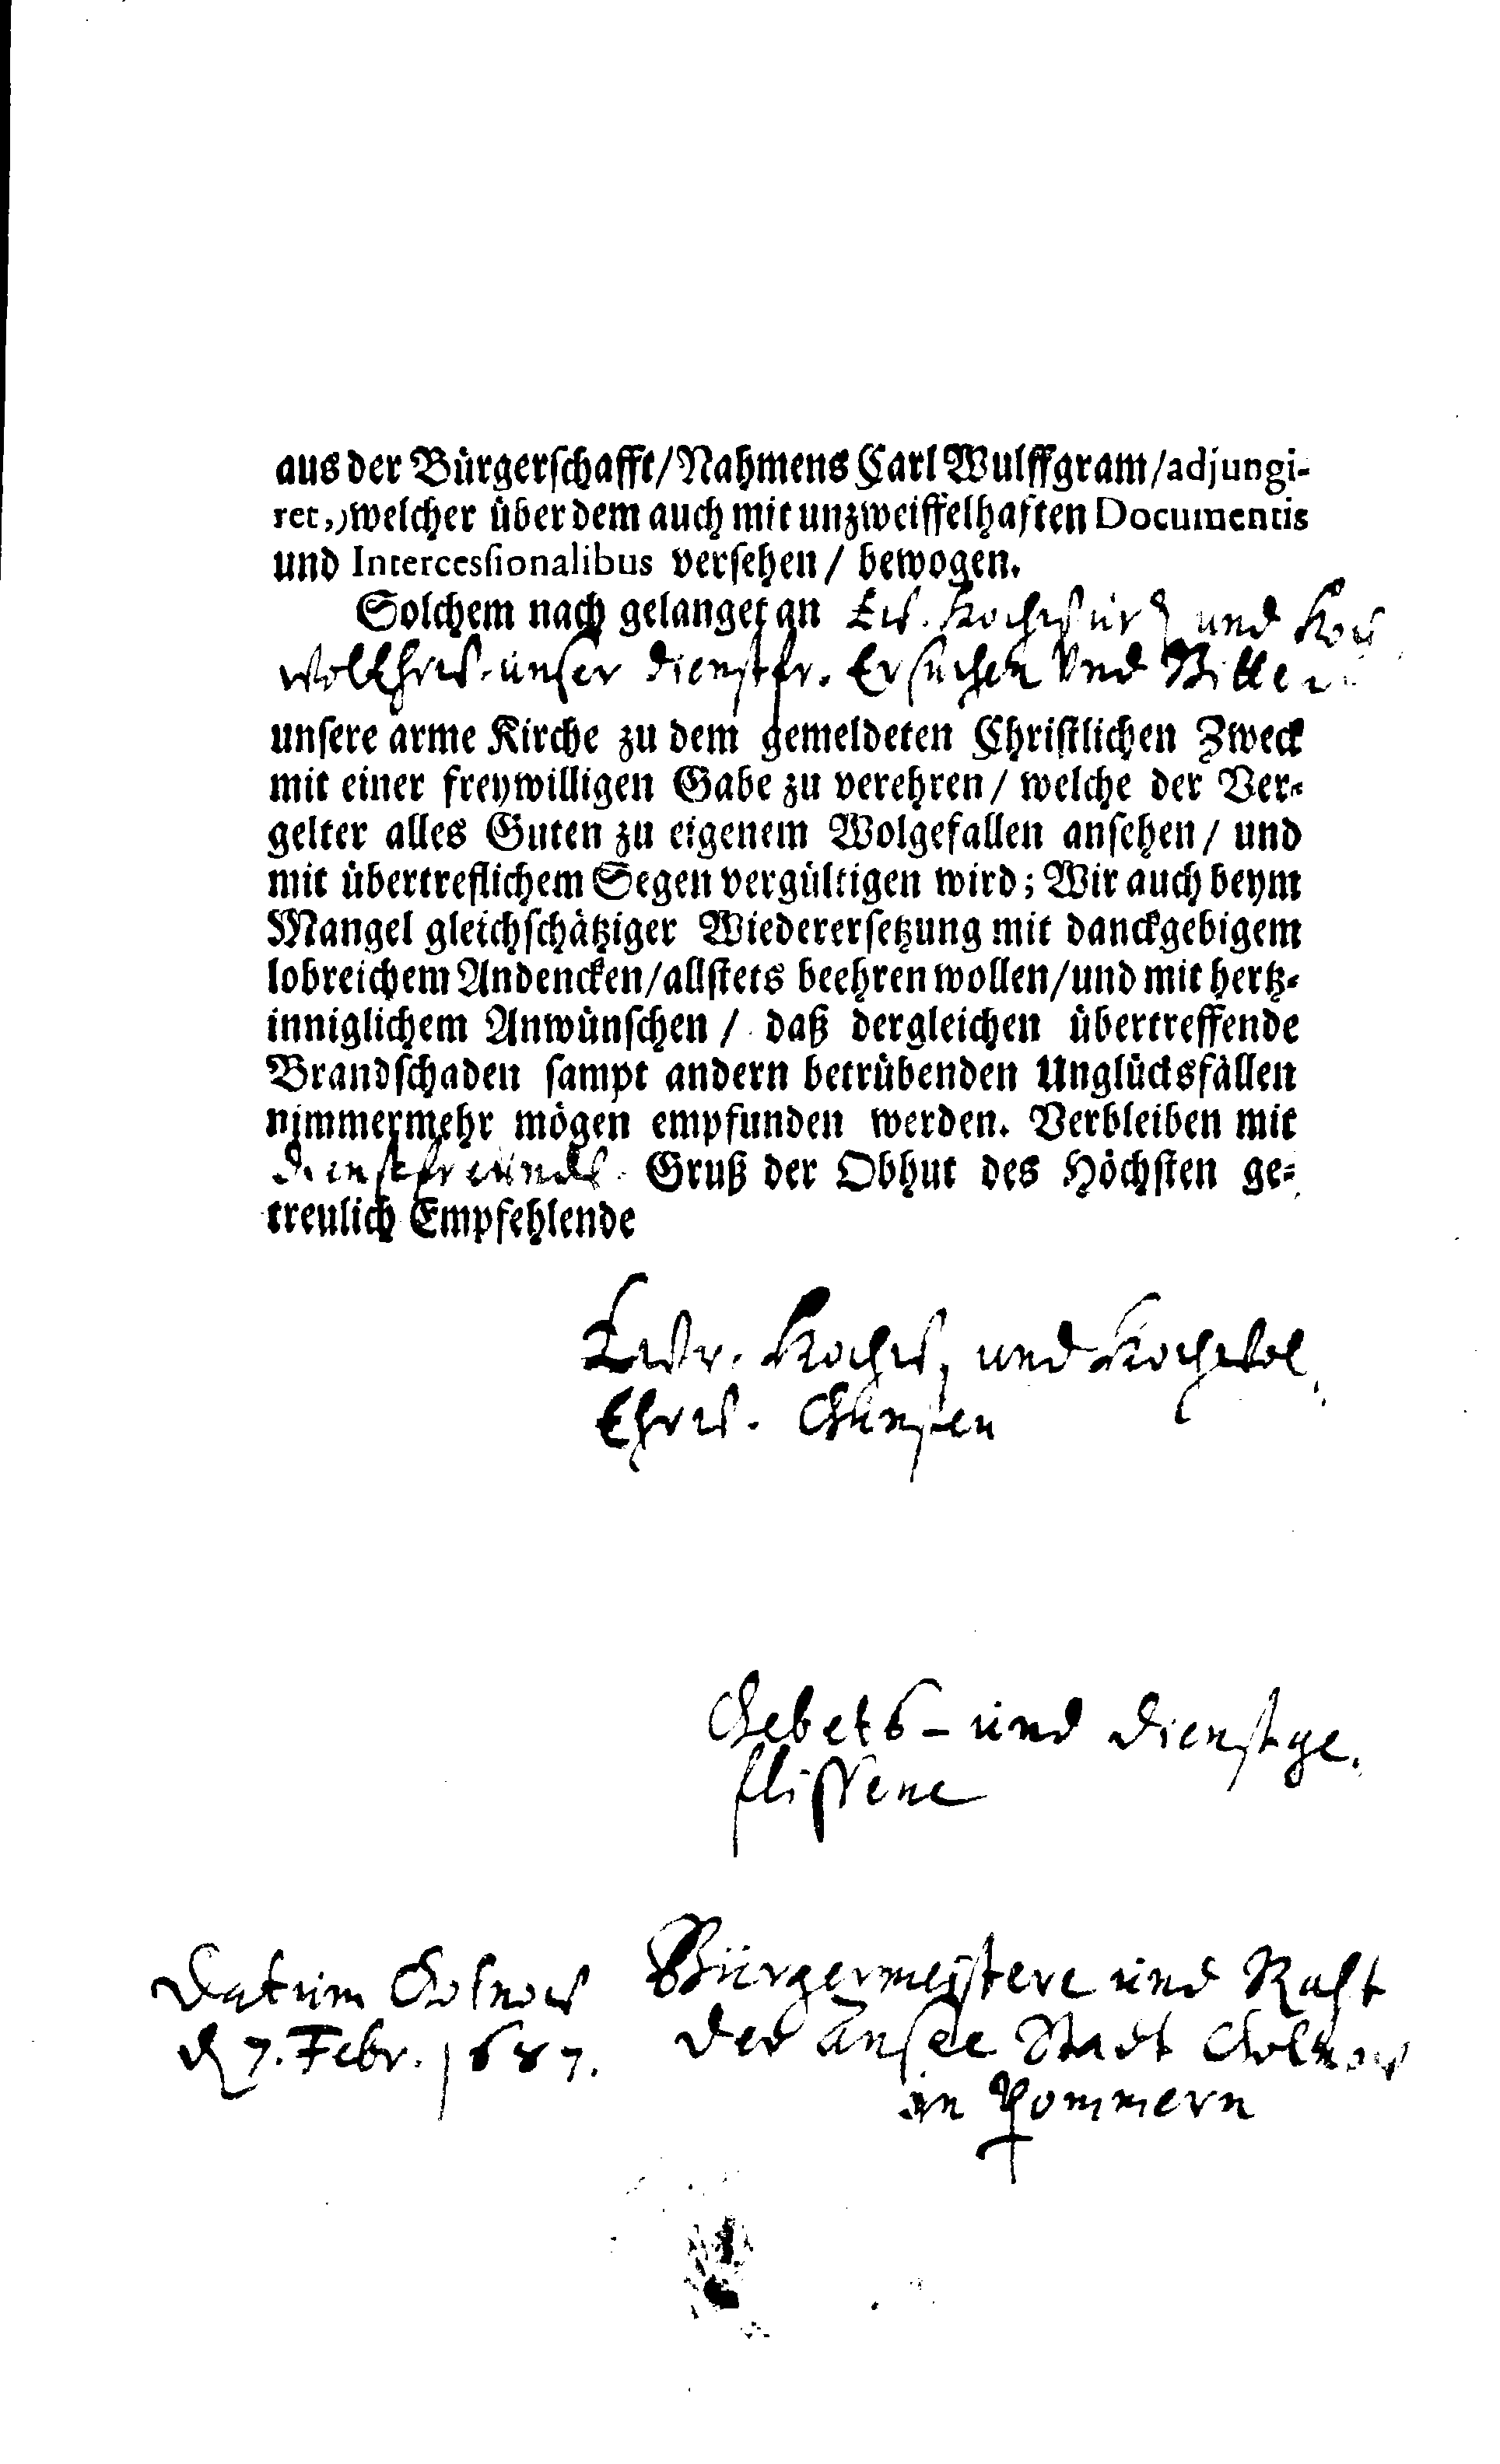 aus der Bürgerschafft/Nahmens Carl Wulffgram/adjungi-
ret,)welcher über dem auch mit unzweiffelhaften Documentis
und Intercessionalibus versehen/ bewogen.
Solchem nach gelanget an Ew. Hochwürd und Hoch
WollEhrw. unser dienstfr. Ersuchen und Bitten
unsere arme Kirche zu dem gemeldeten Christlichen Zweck
mit einer freywilligen Gabe zu verehren/ welche der Ver-
gelter alles Guten zu eigenem Wolgefallen ansehen/ und
mit übertreflichem Segen vergültigen wird; Wir auch beym
Mangel gleichschätziger Wiederersetzung mit danckgebigem
lobreichem Andencken/allstets beehren wollen/und mit hertz-
inniglichem Anwünschen / daß dergleichen übertreffende
Brandschaden sampt andern betrübenden Unglücksfällen
nimmermehr mögen empfunden werden. Verbleiben mit
dienstfreundl. Gruß der Obhut des Höchsten ge-
treulich Empfehlende
Ewr. Hochw. und Hochwol
Ehrw. Gunsten
Gebets- und dienstge-
flissene
Datum Golnow
d 7. Febr. 1687.
Bürgermeistere und Raht
der Ansee Stadt Golnow
in Pommern